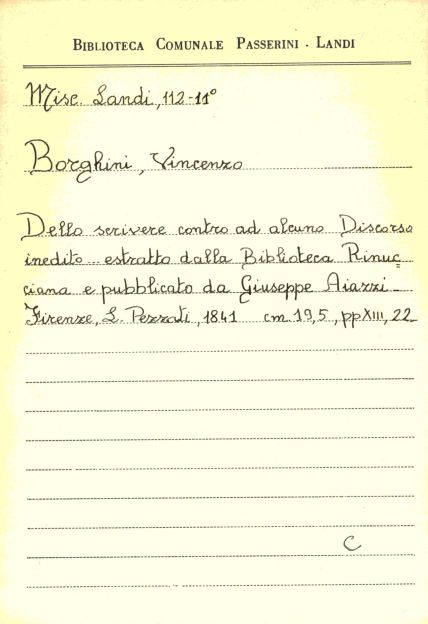 BIBLIOTECA COMUNALE PASSERINI - LANDI
Misc. Landi, 112-11°
Borghini, Vincenzo
Dello scrivere contro ad alcuno Discorso
inedito... estratto dalla Biblioteca Rinuc=
ciana e pubblicato da Giuseppe Aiazzi -
Firenze, L. Pezzati, 1841 cm 19,5, pp XIII, 22
C